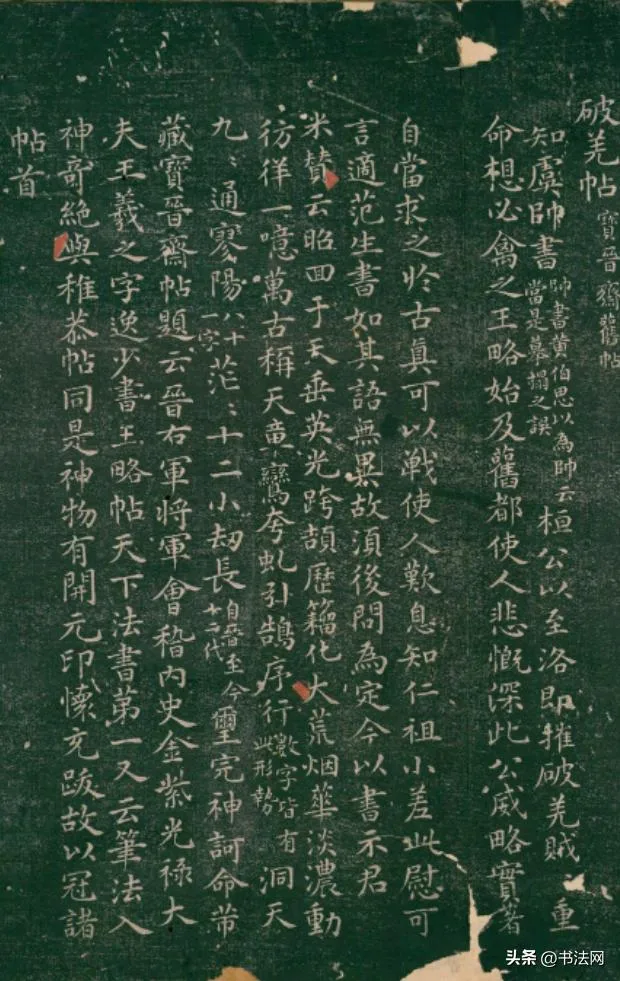 破羌帖 寶晉齋舊帖
知虞帥書 帥書黃伯思以為帥云當是摹搨之誤 桓公以至洛即摧破羌賊 重
命想必禽之王略始及舊都使人悲慨深此公威略實著
自當求之於古真可以戰使人歎息知仁祖小差此慰可
言適范生書如其語無異故須後問為定今以書示君
米贊云昭回于天垂英光跨頡歷籀化大荒烟華淡濃動
彷徉一噫萬古稱天章鸞夸虬引鵠序行 數字皆有此形勢 洞天
九〻通寥陽 八十一字 茫〻十二小劫長 自晉至今十二代 璽完神訶命芾
藏寶晉齋帖題云晉右軍將軍會稽內史金紫光祿大
夫王羲之字逸少書王略帖天下法書第一又云筆法入
神奇絕與稚恭帖同是神物有開元印懷充跋故以冠諸
帖首
头条 @书法网